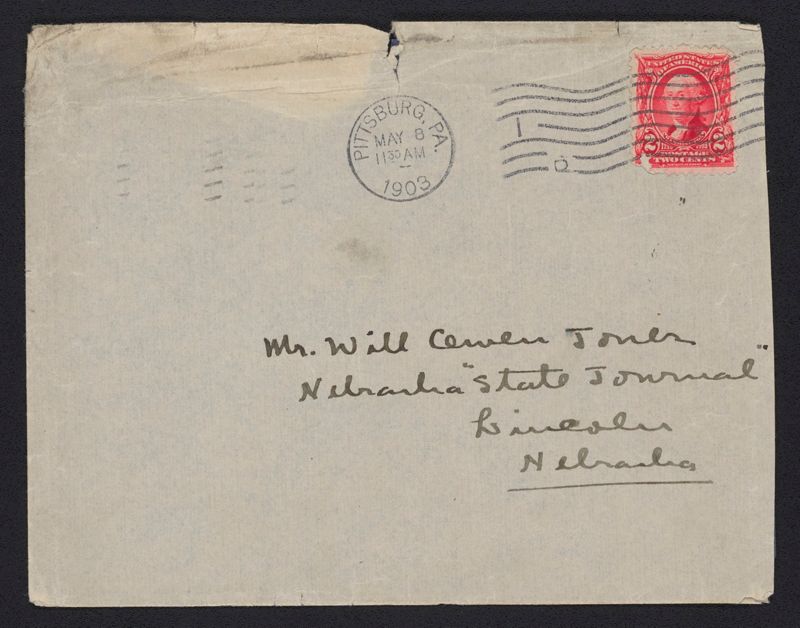 PITTSBURG, PA.
MAY 8
11 30 AM
1903
1
D
UNITED STATES
OF AMERICA
2 2
POSTAGE
TWO CENTS
Mr. Will Owen Jones
Nebraska "State Journal"
Lincoln
Nebraska